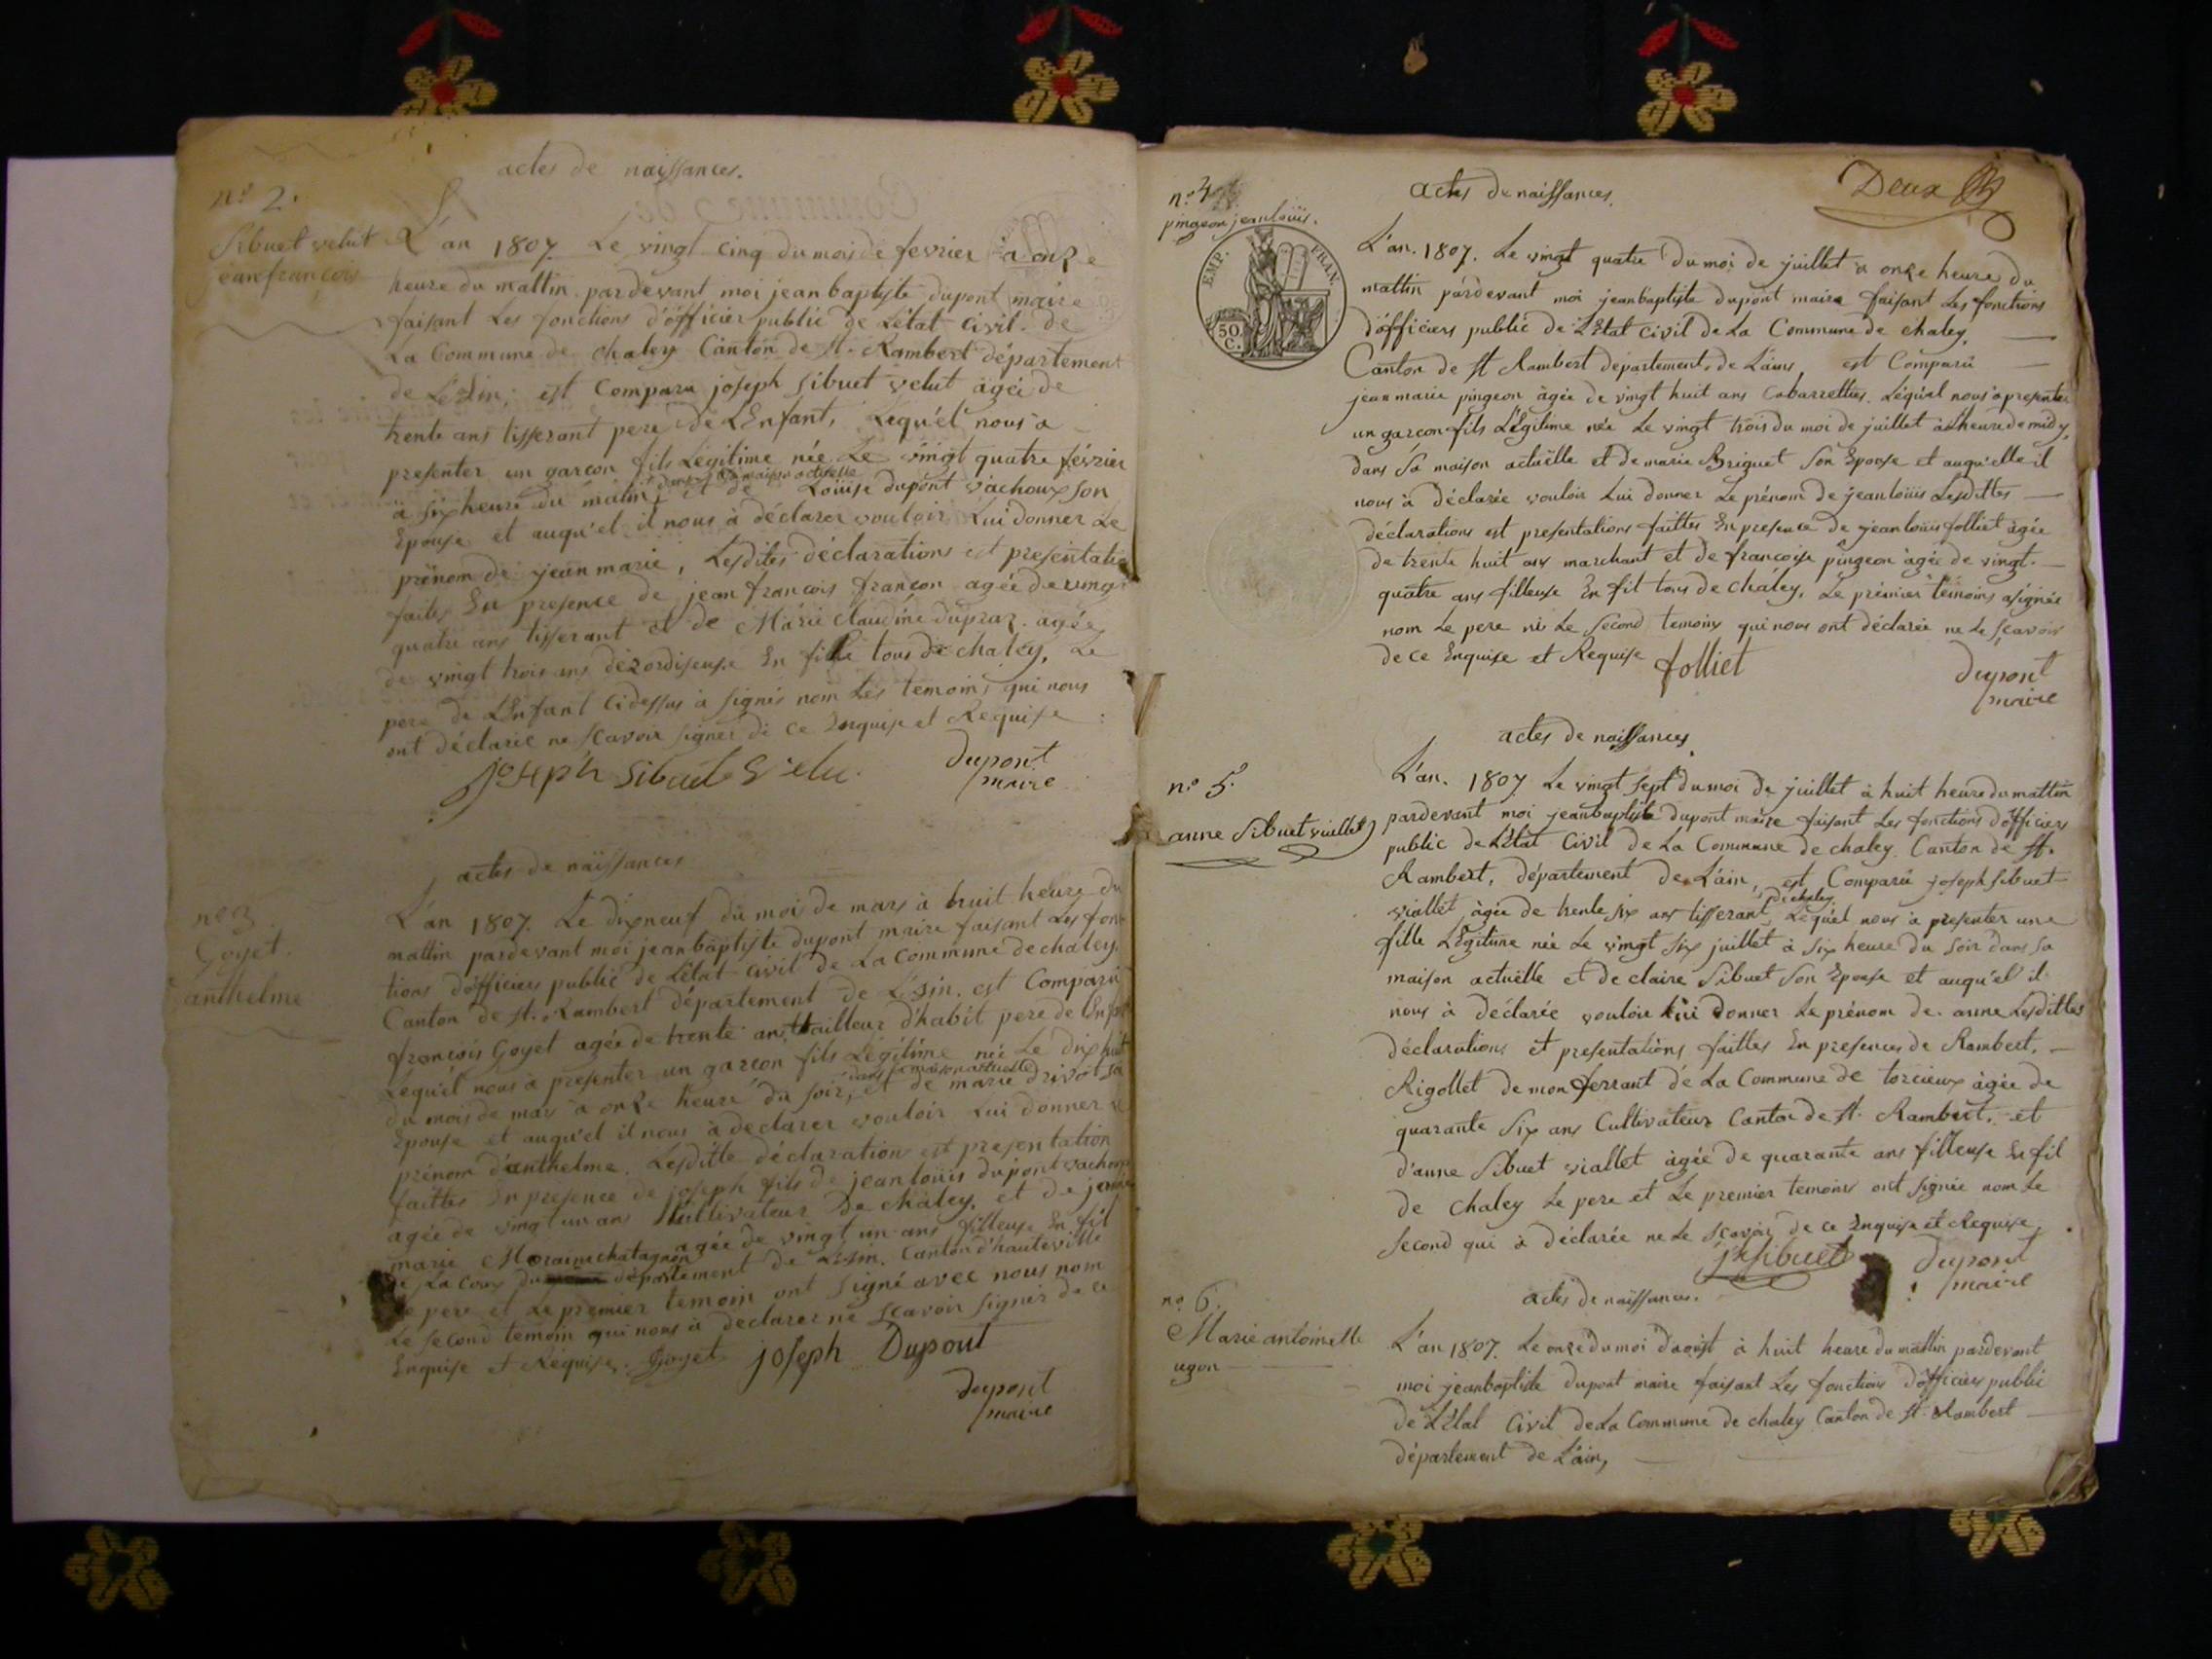 actes de naissances.
n.º 2.
Sibuet velut
jean françois
L'an 1807. Le vingt cinq du mois de fevrier à onze
heure du mattin pardevant moi jean baptiste dupont maire
faisant Les fonctions d'officier public de L'état civil de
La Commune de chaley Canton de st. Rambert département
de L'ain, est Comparu joseph sibuet velut âgée de
trente ans tisserant pere de L'Enfant, Lequ'el nous à
presenter un garcon fils Légitime née Le vingt quatre février
à six heure du matin, dans sa maison actuelle et de Loüise dupont vachoux son
Epouse et auqu'el il nous à déclarer vouloir Lui donner Le
prénom de jean marie, Lesdites déclarations est presentatio
faites En presence de jean françois françon agée de vingt
quatre ans tisserant et de Marie Claudine dupraz agée
de vingt trois ans En fille tous de chaley, Le
pere de L'Enfant cidessus à signés nom Les temoins qui nous
ont déclarée ne scavoir signer de ce Enquise et Requise
joseph sibuet velu
dupont
maire
actes de naissances
n.º 3
Goyet
anthelme
L'an 1807. Le dixneuf du mois de mars à huit heure du
mattin pardevant moi jean baptiste dupont maire faisant Les fonc
tions d'officier public de L'état civil de La Commune de chaley.
Canton de st. Rambert département de L'ain. est Comparu
françois Goyet agée de trente ans tailleur d'habit pere de Enfant
Lequ'el nous à presenter un garcon fils Légitime née Le dix huit
du mois de mars à onze heure du soir, dans sa maison actuelle et de marie drivot sa
Epouse et auqu'el il nous à declarer vouloir Lui donner le
prénom d'anthelme. Lesditte déclaration est presentation
faittes En presence de joseph fils de jean loüis dupont vachoux
agée de vingt un ans Cultivateur de chaley, et de jeanne
marie Moraine chatagnon agée de vingt un ans filleuse En fil
de La Cour du département de L'ain. Canton d'hauteville
Le pere et Le premier temoin ont signé avec nous nom
Le second temoin qui nous à declarer ne scavoir signer de ce
Enquise et Réquise. Goyet joseph Dupont
dupont
maire
Deux
n.º 4
pingeon jean loüis.
EMP. FRAN.
50 C.
actes de naissances.
L'an. 1807. Le vingt quatre du moi de juillet à onze heure du
mattin pardevant moi jean baptiste dupont maire faisant Les fonctions
d'officiers public de L'Etat civil de La Commune de chaley,
Canton de st Rambert departement de L'ains, est Comparü
jean marie pingeon âgée de vingt huit ans Cabarrettier. Lequ'el nous à presenter
un garcon fils Légitime née Le vingt trois du moi de juillet à L'heure de midy,
dans sa maison actuëlle et de marie Briguet son Epouse et auqu'elle il
nous à déclarée vouloir Lui donner Le prénom de jean loüis Lesdittes
déclarations est presentations faittes En presence de jean loüis folliet âgée
de trente huit ans marchant et de francoise pingeon âgée de vingt
quatre ans filleuse En fil tous de chaley, Le prémier témoins asignée
nom Le pere ni Le second temoins qui nous ont déclarée ne Le scavoir
de ce Enquise et Requise folliet
dupont
maire
actes de naissances,
n.º 5.
anne Sibuet viallet
L'an. 1807. Le vingt sept du moi de juillet à huit heure du mattin
pardevant moi jean baptiste dupont maire faisant Les fonctions d'officiers
public de L'Etat Civil de La Commune de chaley. Canton de st.
Rambert, département de L'ain, est Comparü joseph sibuet
viallet, âgée de trente six ans tisserant, de chaley Lequ'el nous à presenter une
fille LEgitime née Le vingt six juillet à six heure du soir dans sa
maison actuëlle et de claire Sibuet son Epouse et auqu'el il
nous à déclarée vouloir Lui donner Le prénom de anne Lesdittes
déclarations et presentations faittes En presences de Rambert.
Rigollet de mon ferrant de La Commune de torcieux âgée de
quarante six ans Cultivateur Canton de st. Rambert, et
d'anne Sibuet viallet âgée de quarante ans filleuse En fil
de chaley Le pere et Le premier temoins ont signée nom Le
second qui à déclarée ne Le scavoir de ce Enquise et Requise,
jh Sibuet
dupont
maire
actes de naissances.
n.º 6.
Marie antoinette
ugon
L'an 1807. Le onze du moi d'aoust à huit heure du mattin pardevant
moi jean baptiste dupont maire faisant Les fonctions d'officiers public
de L'Etat Civil de La Commune de chaley Canton de st. Rambert
département de L'ain,